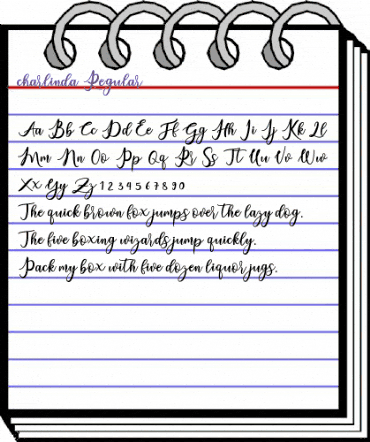 charlinda Regular
Aa Bb Cc Dd Ee Ff Gg Hh Ii Jj Kk Ll
Mm Nn Oo Pp Qq Rr Ss Tt Uu Vv Ww
Xx Yy Zz 1 2 3 4 5 6 7 8 9 0
The quick brown fox jumps over the lazy dog.
The five boxing wizards jump quickly.
Pack my box with five dozen liquor jugs.